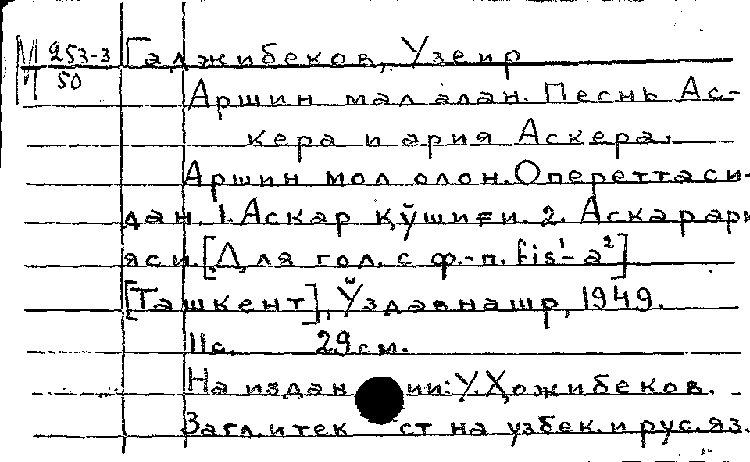 М 253-3 Гаджибеков, Узеир
П 50
Аршин мал алан. Песнь Ас-
кера и ария Аскера.
Аршин мол олон. Опереттаси-
дан. 1. Аскар қўшиғи. 2. Аскар ари-
яси. [Для гол. с ф.-п. fis¹-a²]
[Ташкент], Ўздавнашр, 1949.
11с. 29см.
На издании: У. Ҳожибеков.
Загл. и текст на узбек. и рус. яз.